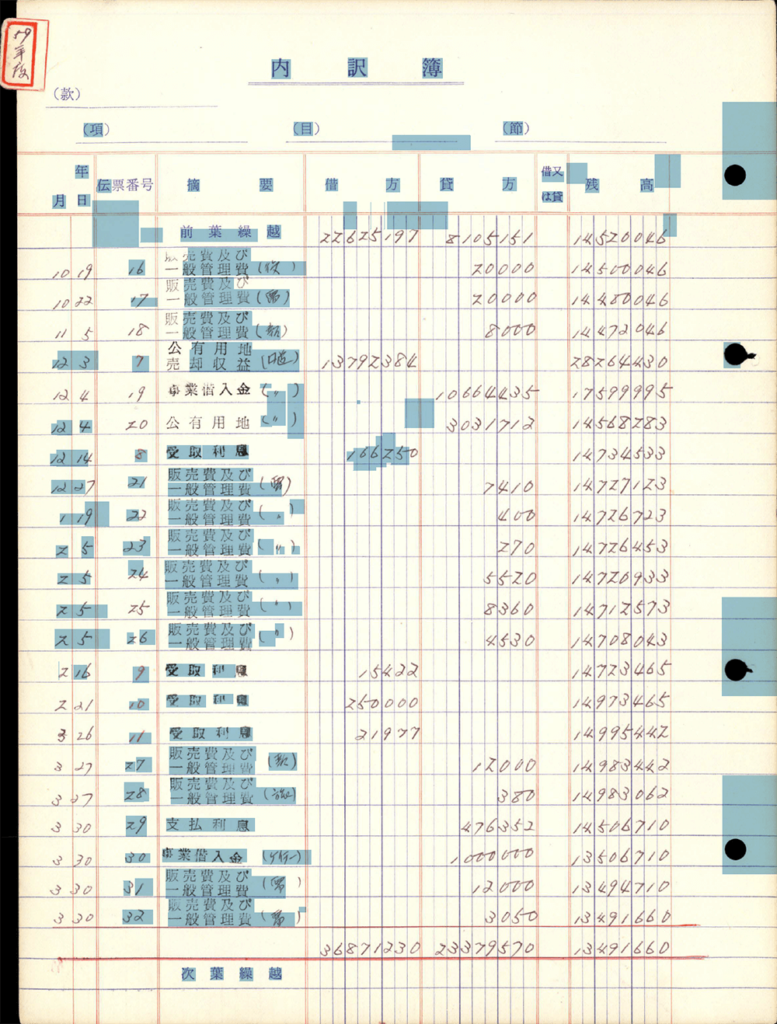 59年度
内訳簿
(款)
(項) (目) (節)
年
月 日 伝票番号 摘要 借方 貸方 借又は貸 残高
前葉繰越 22625197 8105151 14520046
販売費及び
10 19 16 一般管理費 20000 14500046
販売費及び
10 22 17 一般管理費 20000 14480046
販売費及び
11 5 18 一般管理費 8000 14472046
公有用地
12 3 7 売却収益 13792384 28264430
12 4 19 事業借入金 (〃) 10664435 17599995
12 4 20 公有用地 (〃) 3031712 14568283
12 14 8 受取利息 166250 14734533
販売費及び
12 27 21 一般管理費 7410 14727123
販売費及び
1 19 22 一般管理費 (〃) 400 14726723
販売費及び
2 5 23 一般管理費 270 14726453
販売費及び
2 5 24 一般管理費 (〃) 5520 14720933
販売費及び
2 5 25 一般管理費 (〃) 8360 14712573
販売費及び
2 5 26 一般管理費 (〃) 4530 14708043
2 16 9 受取利息 15422 14723465
2 21 10 受取利息 250000 14973465
3 26 11 受取利息 21977 14995442
販売費及び
3 27 27 一般管理費 12000 14983442
販売費及び
3 27 28 一般管理費 380 14983062
3 30 29 支払利息 476352 14506710
3 30 30 事業借入金 1000000 13506710
販売費及び
3 30 31 一般管理費 12000 13494710
販売費及び
3 30 32 一般管理費 3050 13491660
36871230 23379570 13491660
次葉繰越